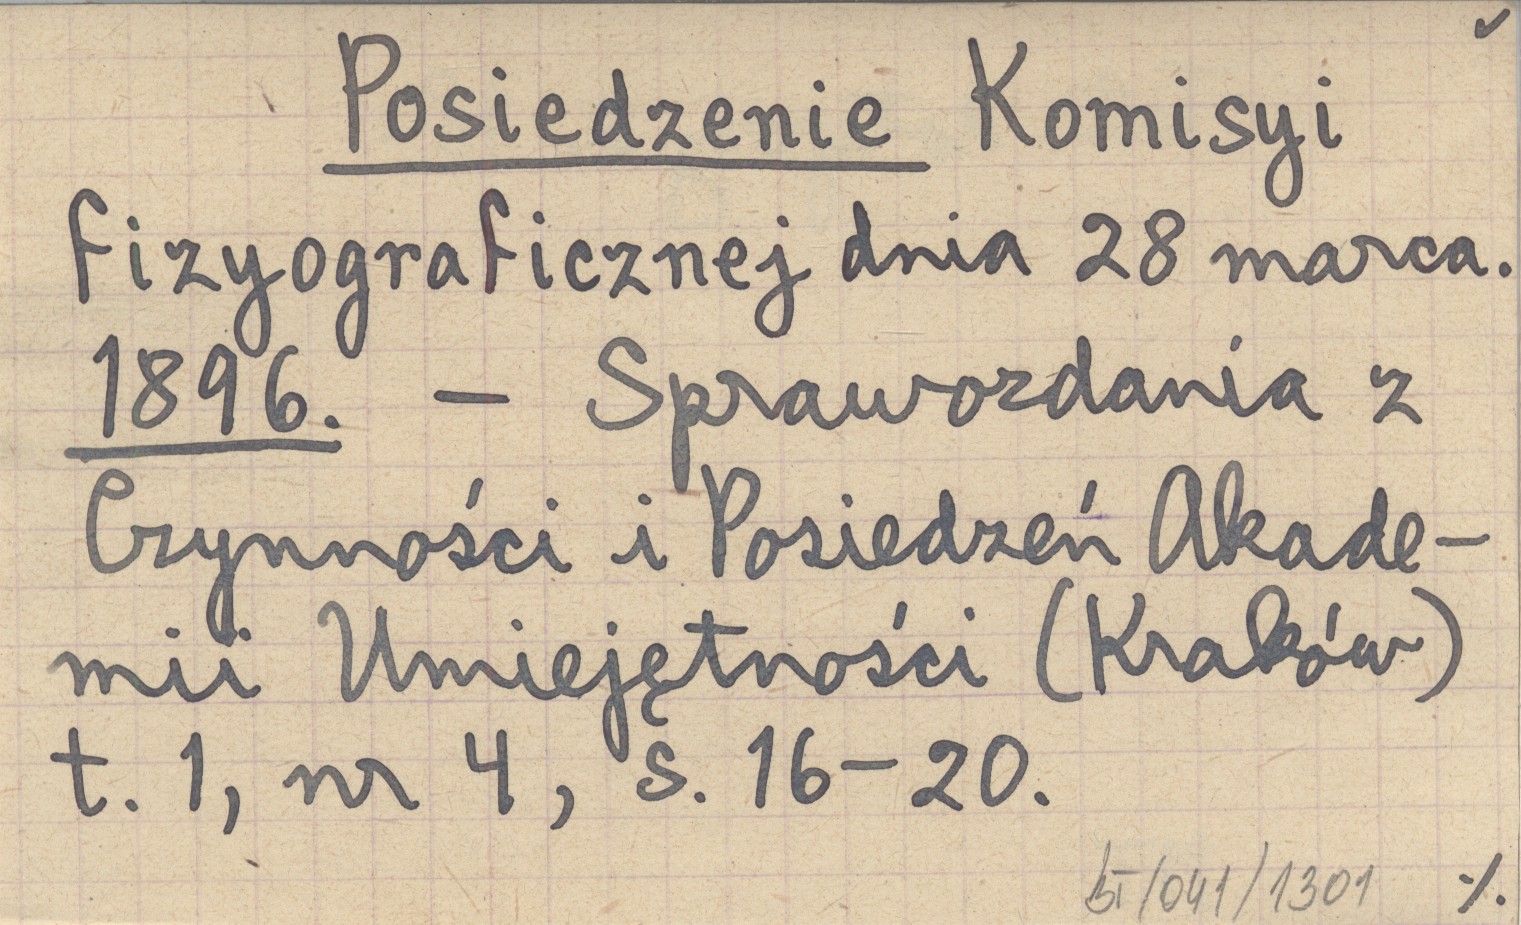 Posiedzenie Komisyi
fizyograficznej dnia 28 marca.
1896. – Sprawozdania z
Czynności i Posiedzeń Akade-
mii Umiejętności (Kraków)
t. 1, nr 4, s. 16-20.
/041/1301 ·/.